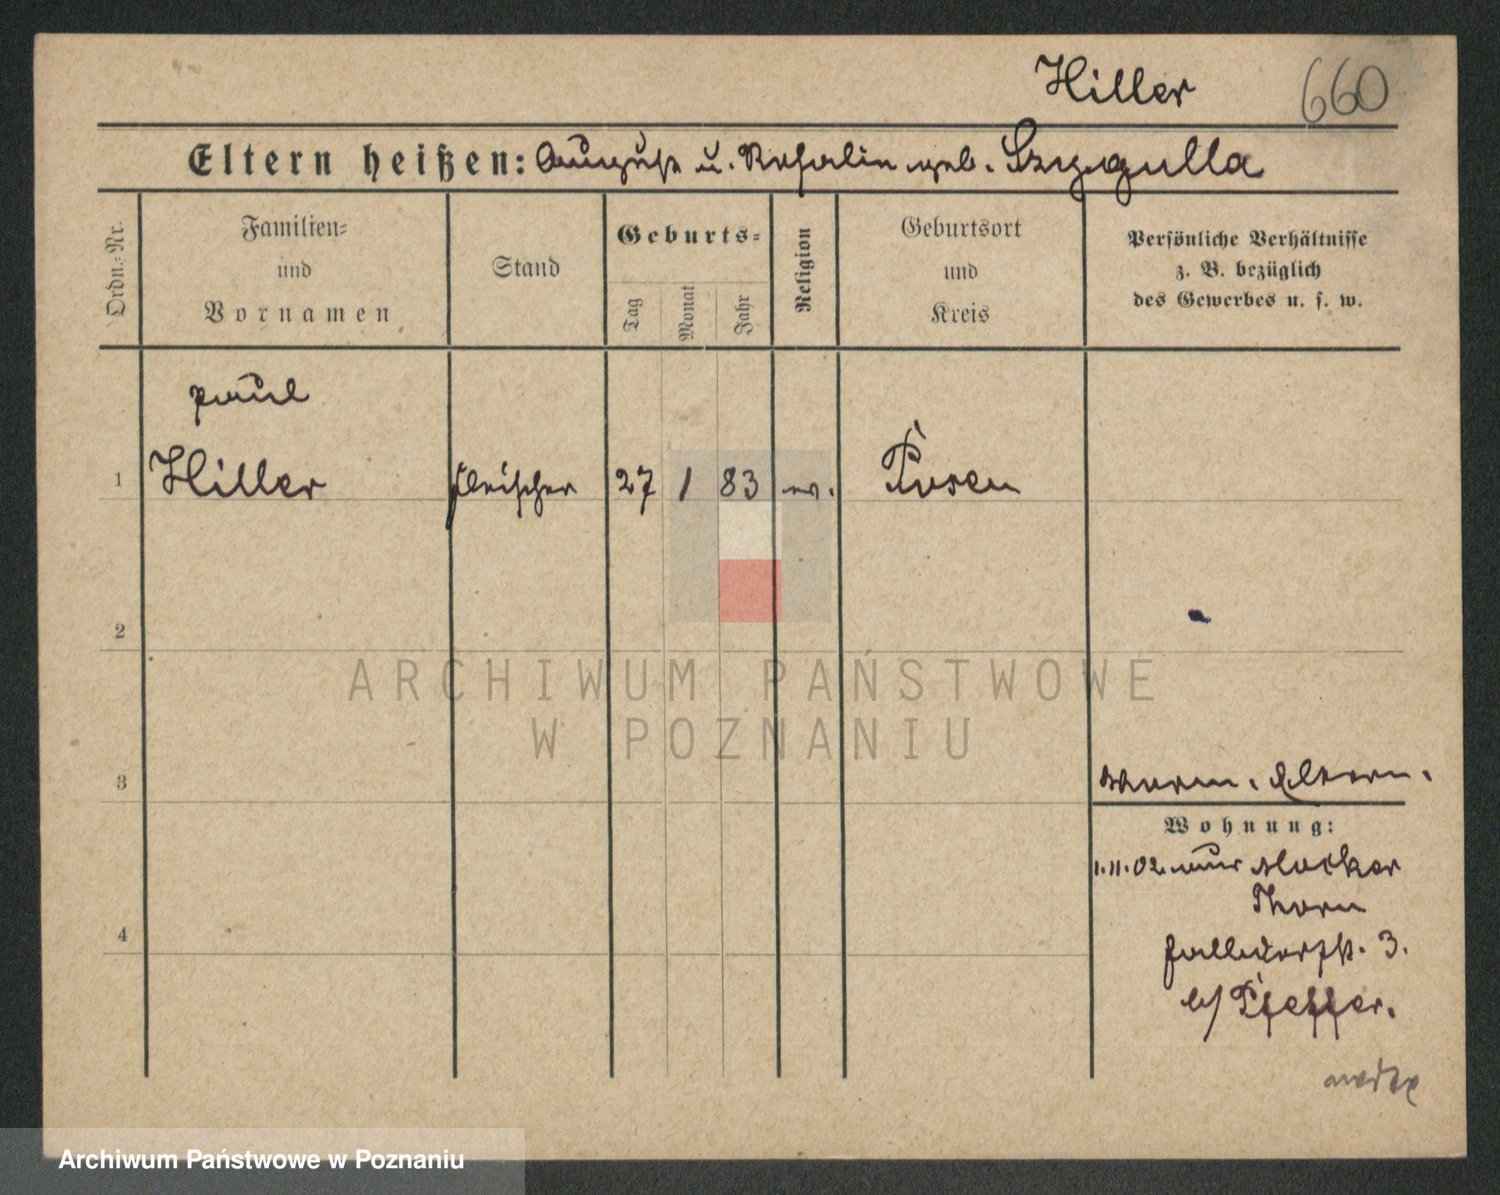 Hiller 660
Eltern heißen: August u. Rosalie geb. Szygulla
Ordn.-Nr.
Familien-
und
Vornamen
Stand
Geburts-
Tag
Monat
Jahr
Religion
Geburtsort
und
Kreis
Persönliche Verhältnisse
z. B. bezüglich
des Gewerbes u. s. w.
Paul
1 Hiller Fleischer 27 1 83 ev. Posen
2
3
4
Eltern.
Wohnung:
1.11.02 nur Mocker
Thorn
3.
b/ Pfeffer.
ARCHIWUM PAŃSTWOWE
W POZNANIU
Archiwum Państwowe w Poznaniu